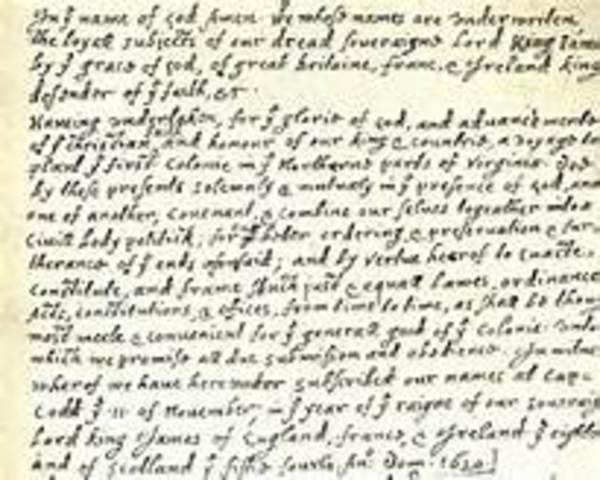 In ỹ name of god Amen. We whose names are underwriten,
the loyall subjects of our dread soveraigne Lord King James
by ỹ grace of god, of great britaine, franc, & Ireland king,
defender of ỹ faith, &c
Haveing undertaken, for ỹ glorie of god, and advancemente
of ỹ christian faith and honour of our king & countrie, a voyage to
plant ỹ first colonie in ỹ Northerne parts of Virginia. Doe
by these presents solemnly & mutualy in ỹ presence of god, and
one of another, covenant, & combine our selves togeather into a
civill body politick; for ỹ better ordering, & preservation & fur-
therance of ỹ ends aforesaid; and by vertue hearof to enacte,
constitute, and frame shuch just & equall lawes, ordinances,
Acts, constitutions, & offices, from time to time, as shall be thought
most meete & convenient for ỹ generall good of ỹ colonie: unto
which we promise all due submission and obedience. In witnes
wherof we have hereunder subscribed our names at Cap-
Codd ỹ .11. of November, in ỹ year of ỹ raigne of our soveraigne
Lord king James of England, franc, & Ireland ỹ eighteen
and of Scotland ỹ fiftie fourth. Anº Dom. 1620]